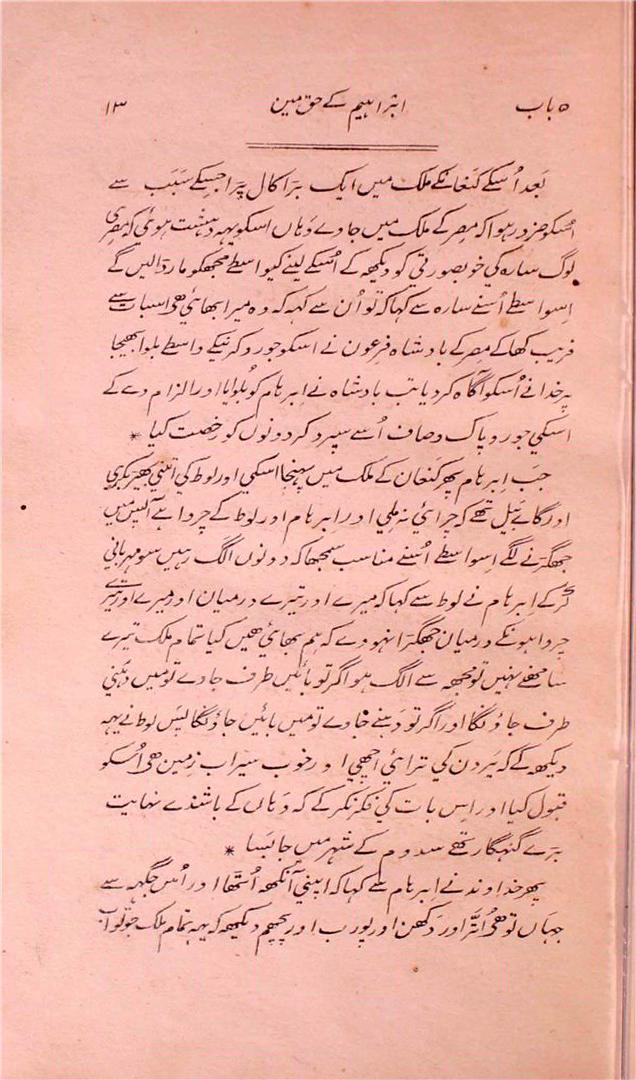 ۵ باب ابراہیم کے حق مین ۱۳
بَعد اُسکے کنعانکے ملک میں ایک بڑا کال پڑا جسکے سَبَب سے
اُسکو ضرور ہوا کہ مِصر کے ملک میں جاوے وَہاں اسکو یہہ دہشت ہوئی کہ مصری
لوگ سارہ کي خوبصورتي کو دیکھہ کے اُسکے لینے کیواسطے مجھکو مار ڈالیں گے
اِسواسطے اُسنے سارہ سے کہا کہ تو اُن سے کہہ کہ وہ میرا بھائي هی اسبات سے
فریب کھا کے مِصر کے بادشاہ فرعون نے اسکو جورو کرنیکے واسطے بلوا بھیجا
پر خدا نے اُسکو آگاہ کر دیا تب بادشاہ نے اِبرہام کو بُلوایا اور الزام دے کے
اسکي جورو پاک و صاف اُسے سپرد کر دونوں کو رُخصت کیا *
جَب اِبرہام پھر کنعان کے ملک میں پہنچا اسکي اور لوط کي اتني بھیڑ بکري
اور گاے بَیل تھے کہ چرائي نہ مِلي اور اِبرہام اور لوط کے چرواہے آپس میں
جھگڑنے لگے اِسواسطے اُسنے مناسب سمجھا کہ دونوں الگ رہیں سو مہرباني
کرکے اِبرہام نے لوط سے کہا کہ میرے اور تیرے درمیان اور میرے اور تیرے
چرواہونکے درمیان جھگڑا نہووے کہ ہم بھائي هیں کیا تمام ملک تیرے
سامھنے نہیں تو مجھہ سے الگ ہو اگر تو بائیں طرف جاوے تو میں دہني
طرف جاؤنگا اور اگر تو دہنے جاوے تو میں بائیں جاؤنگا پس لوط نے یہہ
دیکھہ کے کہ یَردن کي ترائي اچھي اور خوب سیراب زمین هی اُسکو
قبول کیا اور اِس بات کي فکر نکر کے کہ وَہاں کے باشندے نہایت
بڑے گنہگار تھے سدوم کے شہر میں جا بَسا *
پھر خداوند نے ابرہام سے کہا کہ اپني آنکھہ اُٹھا اور اُس جگہہ سے
جہاں تو هی اُتَّر اور دَکھن اور پورب اور پچھم دیکھہ کہ یہہ تمام ملک جو تو اب